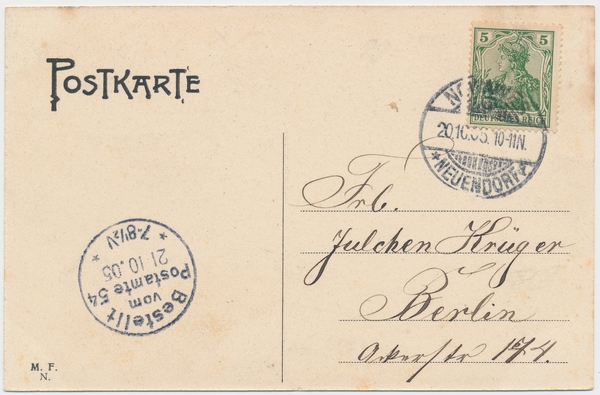 POSTKARTE
5 5
DEUTSCHES REICH
20.10.05. 10-11N.
*NEUENDORF*
Frl.
Julchen Krüger
Berlin
Ackerstr 174.
Bestellt
vom
Postamte 54
21.10.05
* 7-8½V *
M. F.
N.